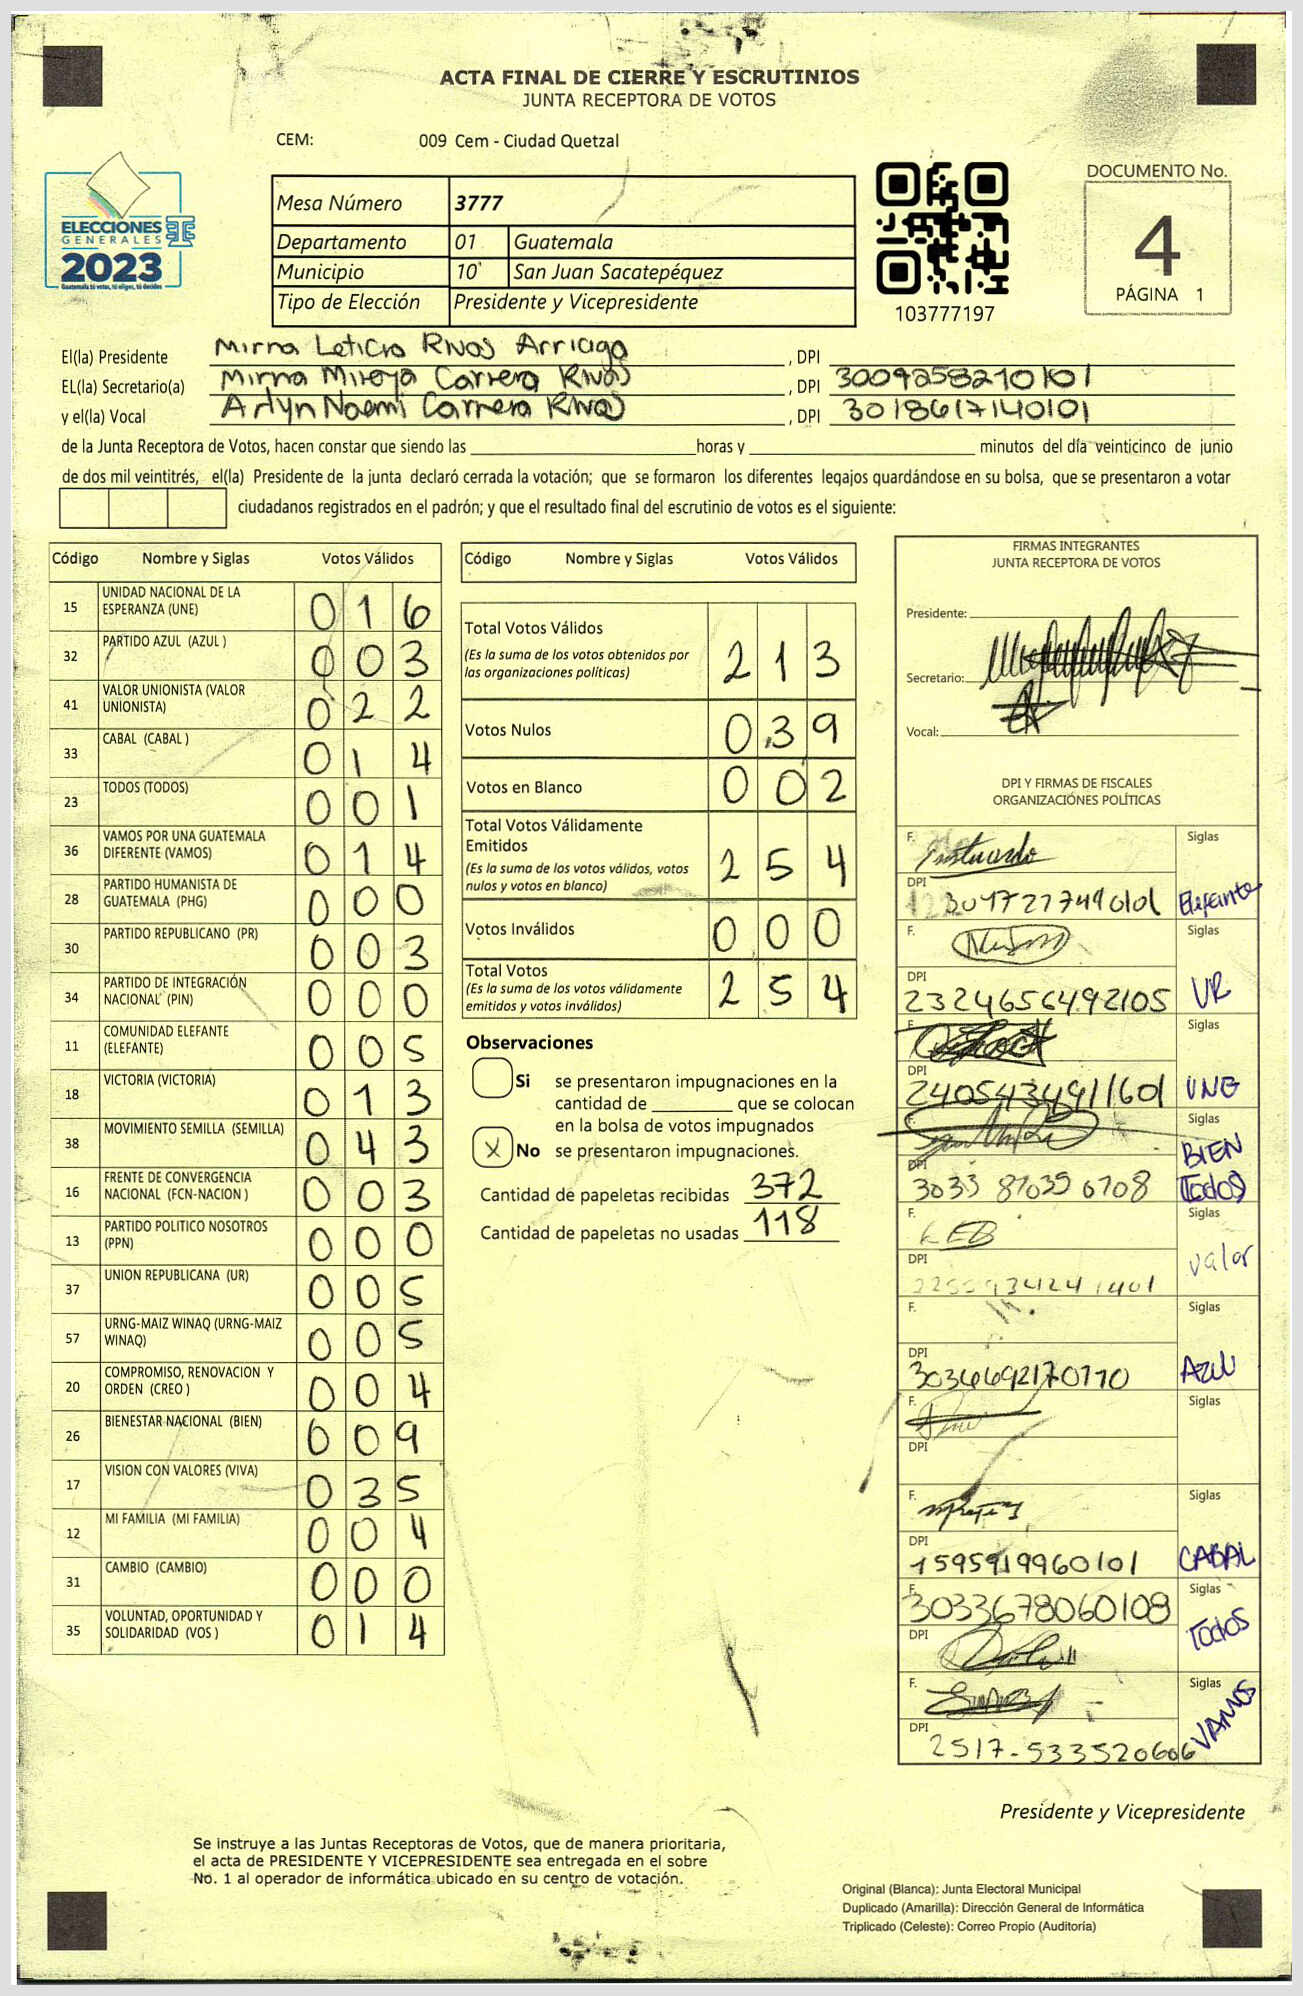 ACTA FINAL DE CIERRE Y ESCRUTINIOS
JUNTA RECEPTORA DE VOTOS
CEM: 009 Cem - Ciudad Quetzal
DOCUMENTO No.
4
PÁGINA 1
ELECCIONES
GENERALES
2023
Guatemala tú votas, tú eliges, tú decides
Mesa Número 3777
Departamento 01 Guatemala
Municipio 10 San Juan Sacatepéquez
Tipo de Elección Presidente y Vicepresidente
103777197
El(la) Presidente Mirna Leticia Rivas Arriaga , DPI
EL(la) Secretario(a) Mirna Mireya Carrera Rivas , DPI 3009258210101
y el(la) Vocal Arlyn Naemi Carrera Rivas , DPI 3018617140101
de la Junta Receptora de Votos, hacen constar que siendo las horas y minutos del día veinticinco de junio
de dos mil veintitrés, el(la) Presidente de la junta declaró cerrada la votación; que se formaron los diferentes legajos guardándose en su bolsa, que se presentaron a votar
ciudadanos registrados en el padrón; y que el resultado final del escrutinio de votos es el siguiente:
Código Nombre y Siglas Votos Válidos
15 UNIDAD NACIONAL DE LA ESPERANZA (UNE) 0 1 6
32 PARTIDO AZUL (AZUL ) 0 0 3
41 VALOR UNIONISTA (VALOR UNIONISTA) 0 2 2
33 CABAL (CABAL ) 0 1 4
23 TODOS (TODOS) 0 0 1
36 VAMOS POR UNA GUATEMALA DIFERENTE (VAMOS) 0 1 4
28 PARTIDO HUMANISTA DE GUATEMALA (PHG) 0 0 0
30 PARTIDO REPUBLICANO (PR) 0 0 3
34 PARTIDO DE INTEGRACIÓN NACIONAL (PIN) 0 0 0
11 COMUNIDAD ELEFANTE (ELEFANTE) 0 0 5
18 VICTORIA (VICTORIA) 0 1 3
38 MOVIMIENTO SEMILLA (SEMILLA) 0 4 3
16 FRENTE DE CONVERGENCIA NACIONAL (FCN-NACION ) 0 0 3
13 PARTIDO POLITICO NOSOTROS (PPN) 0 0 0
37 UNION REPUBLICANA (UR) 0 0 5
57 URNG-MAIZ WINAQ (URNG-MAIZ WINAQ) 0 0 5
20 COMPROMISO, RENOVACION Y ORDEN (CREO ) 0 0 4
26 BIENESTAR NACIONAL (BIEN) 0 0 9
17 VISION CON VALORES (VIVA) 0 3 5
12 MI FAMILIA (MI FAMILIA) 0 0 4
31 CAMBIO (CAMBIO) 0 0 0
35 VOLUNTAD, OPORTUNIDAD Y SOLIDARIDAD (VOS ) 0 1 4
Código Nombre y Siglas Votos Válidos
Total Votos Válidos 2 1 3
(Es la suma de los votos obtenidos por
las organizaciones políticas)
Votos Nulos 0 3 9
Votos en Blanco 0 0 2
Total Votos Válidamente
Emitidos 2 5 4
(Es la suma de los votos válidos, votos
nulos y votos en blanco)
Votos Inválidos 0 0 0
Total Votos 2 5 4
(Es la suma de los votos válidamente
emitidos y votos inválidos)
Observaciones
Si se presentaron impugnaciones en la
cantidad de que se colocan
en la bolsa de votos impugnados
X No se presentaron impugnaciones.
Cantidad de papeletas recibidas 372
Cantidad de papeletas no usadas 118
FIRMAS INTEGRANTES
JUNTA RECEPTORA DE VOTOS
Presidente:
Secretario:
Vocal:
DPI Y FIRMAS DE FISCALES
ORGANIZACIÓNES POLÍTICAS
F. Siglas
DPI Elefante
F. Siglas
DPI 2324656492105 UR
F. Siglas
DPI UNE
F. Siglas
DPI BIEN
Todos
F. Siglas
DPI valor
F. Siglas
DPI Azul
F. Siglas
DPI
F. Siglas
DPI 1595919960101 CABAL
F. 3033678060108 Siglas
DPI Todos
F. Siglas
DPI 2517-533520606 VAMOS
Presidente y Vicepresidente
Se instruye a las Juntas Receptoras de Votos, que de manera prioritaria,
el acta de PRESIDENTE Y VICEPRESIDENTE sea entregada en el sobre
No. 1 al operador de informática ubicado en su centro de votación.
Original (Blanca): Junta Electoral Municipal
Duplicado (Amarilla): Dirección General de Informática
Triplicado (Celeste): Correo Propio (Auditoria)